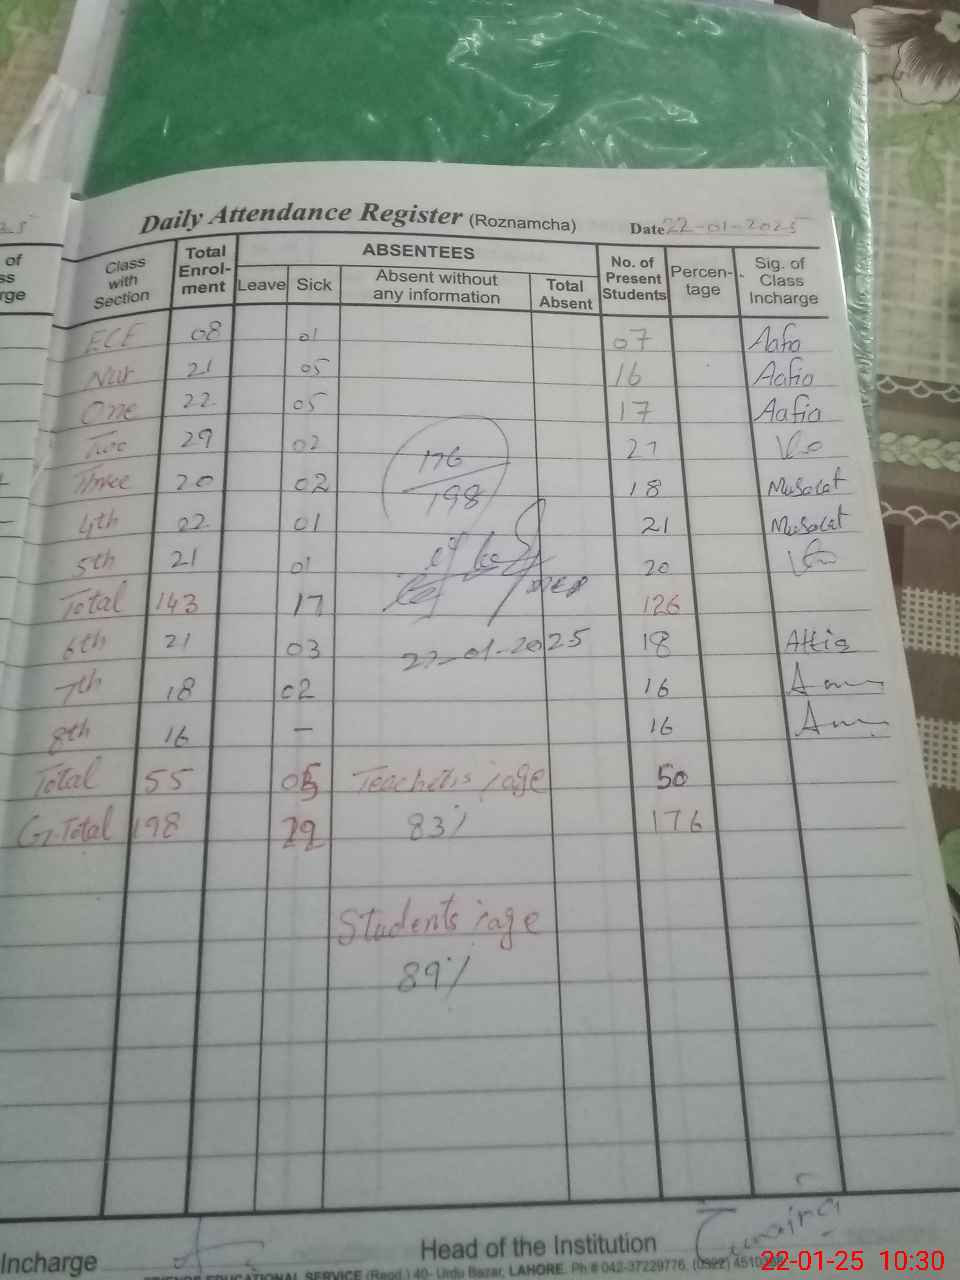 Daily Attendance Register (Roznamcha) Date 22-01-2025
Class with Section Total Enrol-ment ABSENTEES No. of Present Students Percen-tage Sig. of Class Incharge
Leave Sick Absent without any information Total Absent
ECE 08 01 07 Aafia
Nur 21 05 16 Aafia
One 22 05 17 Aafia
Two 29 02 27
176
Three 20 02 18 Musalat
198
4th 22 01 21 Musalat
5th 21 01 20
Total 143 17 126
6th 21 03 18 Attia
22-01-2025
7th 18 02 16
8th 16 – 16
Total 55 05 Teachers %age 50
G.Total 198 22 83% 176
Students %age
89%
Incharge
Head of the Institution
EDUCATIONAL SERVICE (Regd.) 40- Urdu Bazar, LAHORE. Ph # 042-37229776,
22-01-25 10:30